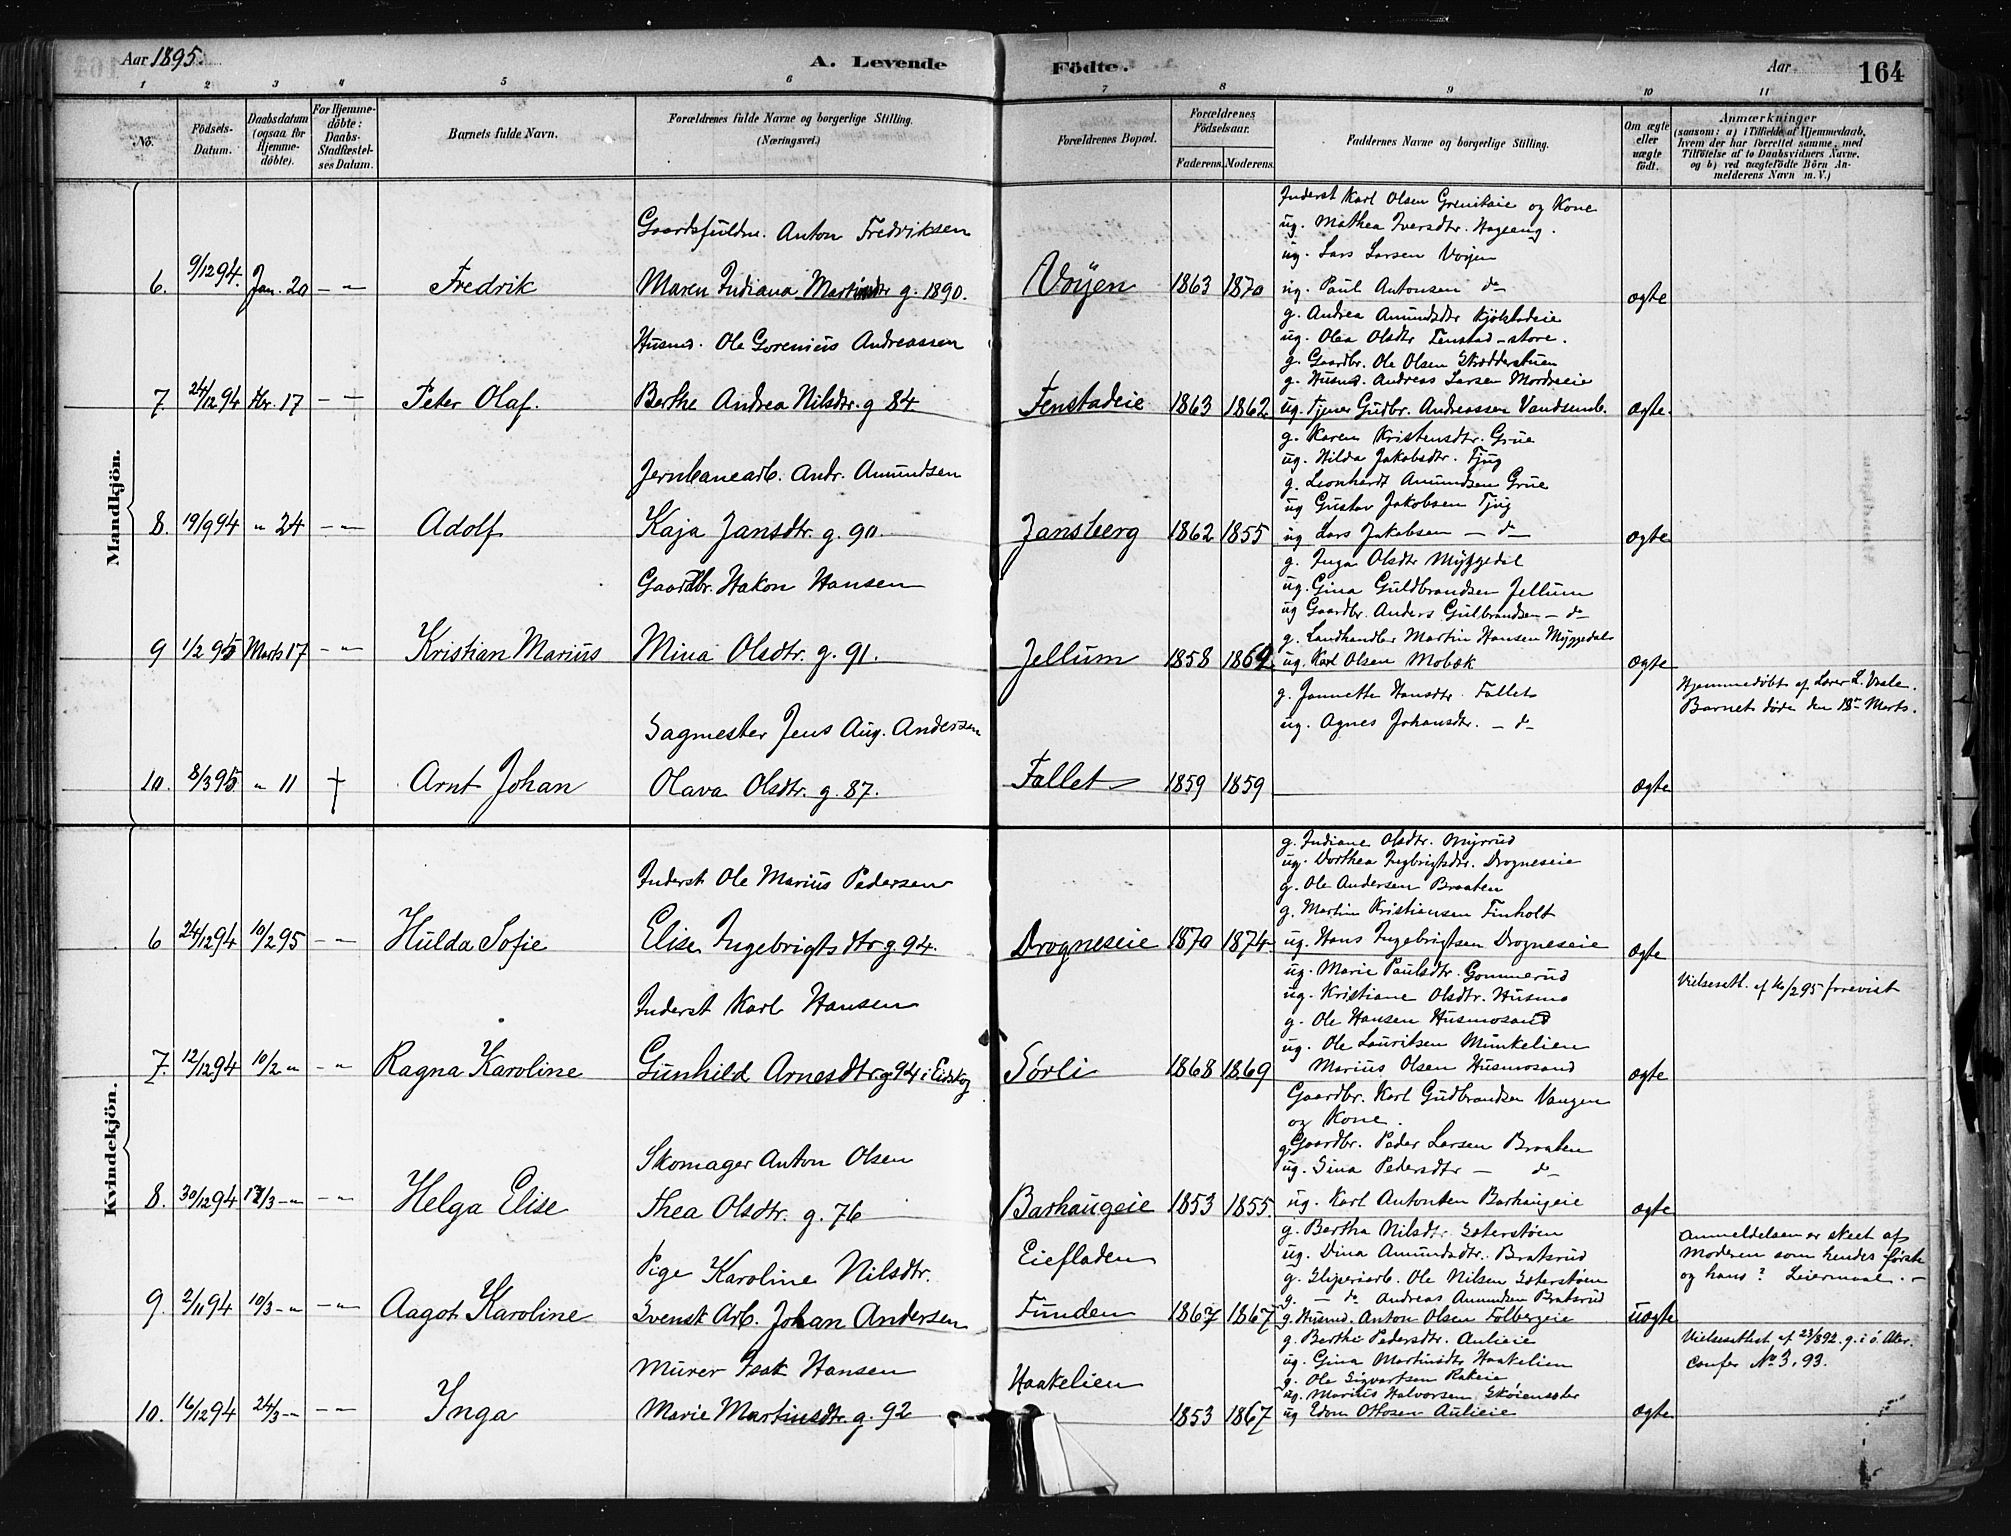 Aar 1895.
A. Levende Födte.
Aar
164
1 2 3 4 5 6 7 8 9 10 11
No.
Födsels-Datum.
Daabsdatum (ogsaa for Hjemme-döbte).
For Hjemme-döbte: Daabs-Stadfæstel-ses Datum.
Barnets fulde Navn.
Forældrenes fulde Navne og borgerlige Stilling.
(Næringsvei.)
Forældrenes Bopæl.
Forældrenes Födselsaar.
Faderens. Moderens.
Faddernes Navne og borgerlige Stilling.
Om ægte eller uægte födt.
Anmærkninger
(saasom: a) i Tilfælde af Hjemmedaab, hvem der har forrettet samme, med Tilföielse af to Daabsvidners Navne, og b) ved uægtefödte Börn An-melderens Navn m. V.)
Mandkjön.
Gaardsfuldm. Anton Fredriksen
6. 9/12 94. Jan. 20 - " Fredrik
Maren Indiana Martinsdtr g. 1890.
Vøyen 1863 1870
Inderst Karl Olsen Grenitaie og Kone
ug. Mathea Iversdtr. Hageeng.
ug. Lars Larsen Vøyen
ug. Paul Antonsen do
ægte
Husmd. Ole Gorenius Andreassen
7. 24/12 94 Fbr. 17 - - Peter Olaf.
Berthe Andrea Nilsdtr. g 84.
Fenstadeie 1863 1862
g. Andrea Amundsdtr Kjølstadeie
ug. Olea Olsdtr Fenstad-store.
g. Gaardbr. Ole Olsen Skødderstuen
g. Husmd. Andreas Larsen Mordreeie
ug. Tjener Gudbr. Andreassen Vandsemb.
ægte.
Jernbanearb. Andr. Amundsen
8. 19/9 94 " 24 - " Adolf
Kaja Jansdtr. g. 90.
Jansberg 1862 1855
g. Karen Kristensdtr. Grue
ug. Hilda Jakobsdtr. Fjug
g. Leonhardt Amundsen Grue
ug Gustav Jakobsen Fjug
ug Lars Jakobsen - d -
ægte
Gaardbr. Hakon Hansen
9 1/2 95 Marts 17 - " Kristian Marius
Mina Olsdtr. g. 91.
Jellum 1858 1869
g. Inga Olsdtr Myggedal
ug. Gina Guldbrandsen Jellum
ug Gaardbr. Anders Gulbrandsen - do
g. Landhandler Martin Hansen Myggedal
ug. Karl Olsen Mobæk
ægte
Sagmester Jens Aug. Andersen
10. 8/3 95 " 11 † Arnt Johan
Olava Olsdtr. g. 87.
Fallet 1859 1859
g. Jannette Hansdtr. Fallet
ug. Agnes Johansdtr. - d -
ægte
Hjemmedøbt af Lærer L. Vaale.
Barnet døde den 18de Marts.
Kvindekjön.
Inderst Ole Marius Pedersen
6 24/12 94 10/2 95 - - Hulda Sofie
Elise Ingebrigtsdtr g 94.
Drogneseie 1870 1874
g. Indiane Olsdtr. Myrrud
ug. Dorthea Ingbrigtsdtr. Drogneseie
g. Ole Andersen Braaten
g. Martin Kristiansen Finholt
ug. Hans Ingebrigtsen Drogneseie
ægte
Vielsesatt. af 10/2 95 forevist
Inderst Karl Hansen
7. 12/12 94 10/2 " - " Ragna Karoline
Gunhild Arnesdtr. g 94 i Eidskog
Sørli 1868 1869
ug. Marie Paulsdtr. Gommerud
ug. Kristiane Olsdtr. Husmo
g. Ole Hansen Husmosand
ug. Ole Lauritsen Munkelien
Marius Olsen Husmosand
ægte
Skomager Anton Olsen
8. 30/12 94 17/3 - " - " Helga Elise
Thea Olsdtr. g. 76
Barhaugeie 1853 1855.
Gaardbr. Karl Gudbrandsen Vangen
og Kone.
g. Gaardbr. Peder Larsen Braaten
ug. Gina Pedersdtr - do
ug. Karl Antonsen Barhaugeie
ægte
Pige Karoline Nilsdtr.
Eiefladen
9. 2/11 94 10/3 - " - " Aagot Karoline
Svensk Arb. Johan Andersen
Funden 1867 1867
g. Bertha Nilsdtr. Sæterstøen
ug. Dina Amundsdtr. Bratsrud
g. Sliperiarb. Ole Nilsen Sæterstøen
g. - do Andreas Amundsen Bratsrud
g. Husmd. Anton Olsen Folbergeie
uægte
Anmeldelsen er skeet af
Moderen som hendes første
og hans? Leiermaal. -
Murer Isak Hansen
10. 16/12 94 24/3 - - - Inga
Marie Martinsdtr. g. 92
Haakelien 1853 1867
g. Berthe Pedersdtr. Aulieie
ug. Gina Martinsdtr Haakelien
g. Ole Sigvartsen Rakeie
ug. Marius Halvorsen Skøiensæter
ug Edon Ottosen Aulieie
ægte
Vielsesattest af 23/8 92. g. i ø. Aker.
Confer No 3, 93.